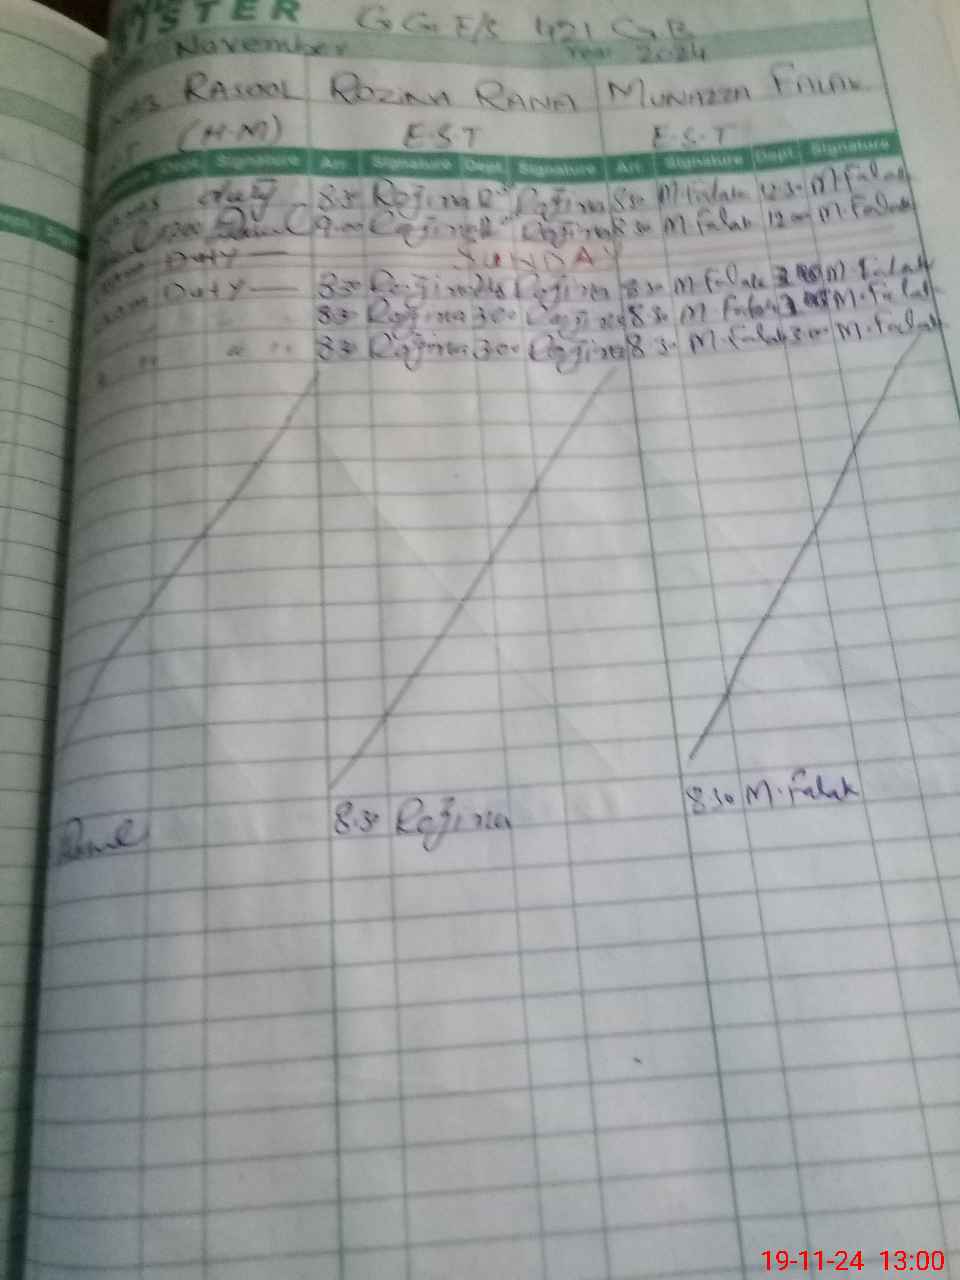 STER G G E/S 421 G.B
November Year 2024
RASOOL ROZINA RANA MUNAZZA FALAK
(H.M) E.S.T E.S.T
Dept. Signature Arr. Signature Dept. Signature Arr. Signature Dept. Signature
duty 8.30 Rozina Rozina 8.30 M.Falak 12.30 M.Falak
12.00 9.00 Rozina Rozina 8.30 M.Falak 12.00 M.Falak
Exam Duty — SUNDAY
Exam Duty — 8.30 Rozina Rozina 8.30 M.Falak M.Falak
8.30 Rozina 3.00 Rozina 8.30 M.Falak M.Falak
" " " " 8.30 Rozina 3.00 Rozina 8.30 M.Falak 3.00 M.Falak
8.30 Rozina 8.30 M.Falak
19-11-24 13:00